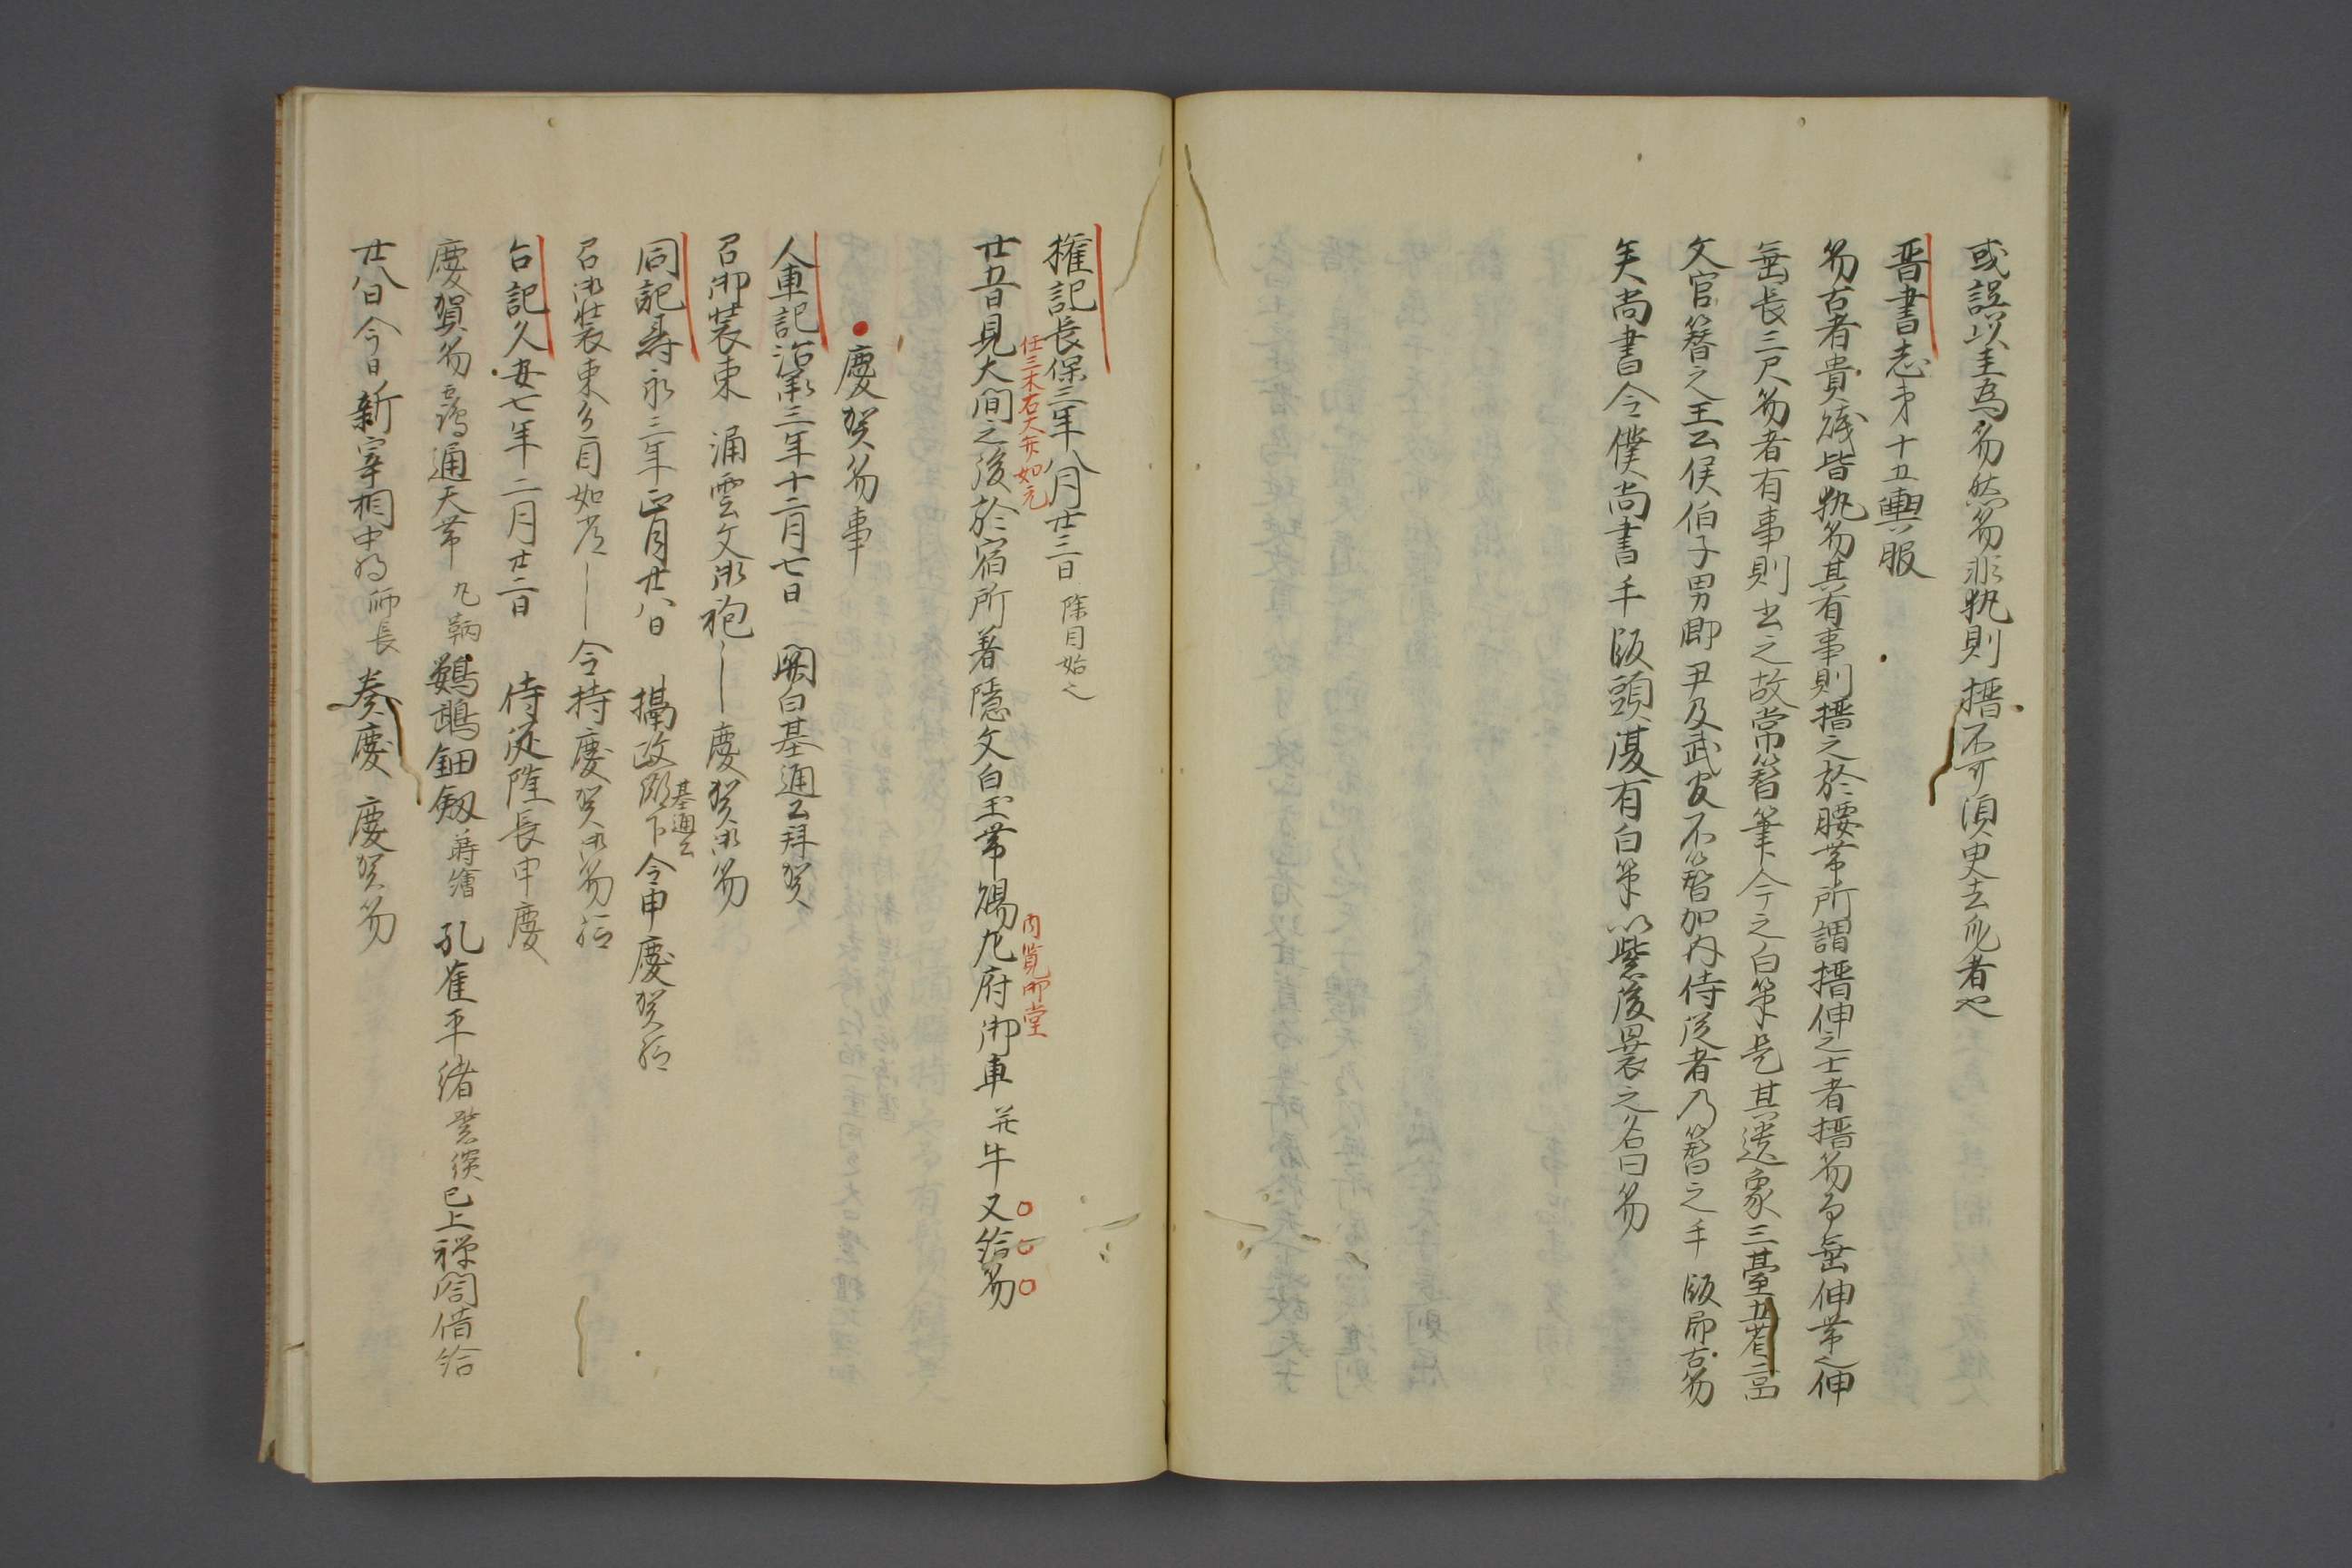 或誤以圭為笏然笏非執則搢不可須臾去身者也
晋書志第十五輿服
笏古者貴賤皆執笏其有事則搢之於腰帯所謂搢伸之士者搢笏而垂伸帯也伸
垂長三尺笏者有事則書之故常簪筆今之白筆是其遺象三臺五省二品
文官簪之王公侯伯子男卿尹及武官不簪加内侍従者乃簪之手版即古笏
矣尚書令僕尚書手版頭復有白筆以紫皮裹之名曰笏
権記長保三年八月廿三日除目始之
任三木右大弁如元
廿五日見大間之後於宿所著隠文白玉帯賜左府御車并牛又給笏
内覧御堂
慶賀笏事
人車記治承三年十二月七日 関白基通公拝賀
召御装束 涌雲文御袍― 慶賀御笏
同記寿永三年正月廿八日 摂政殿下基通公令申慶賀給
召御装束色目如常― 令持慶賀御笏給
台記久安七年二月廿二日 侍従隆長申慶
慶賀笏 通天帯丸鞆 鸚鵡鈿釼蒔繪 孔雀平緒紫緂 已上禅閤借給
廿八日今日新宰相中将師長奏慶 慶賀笏